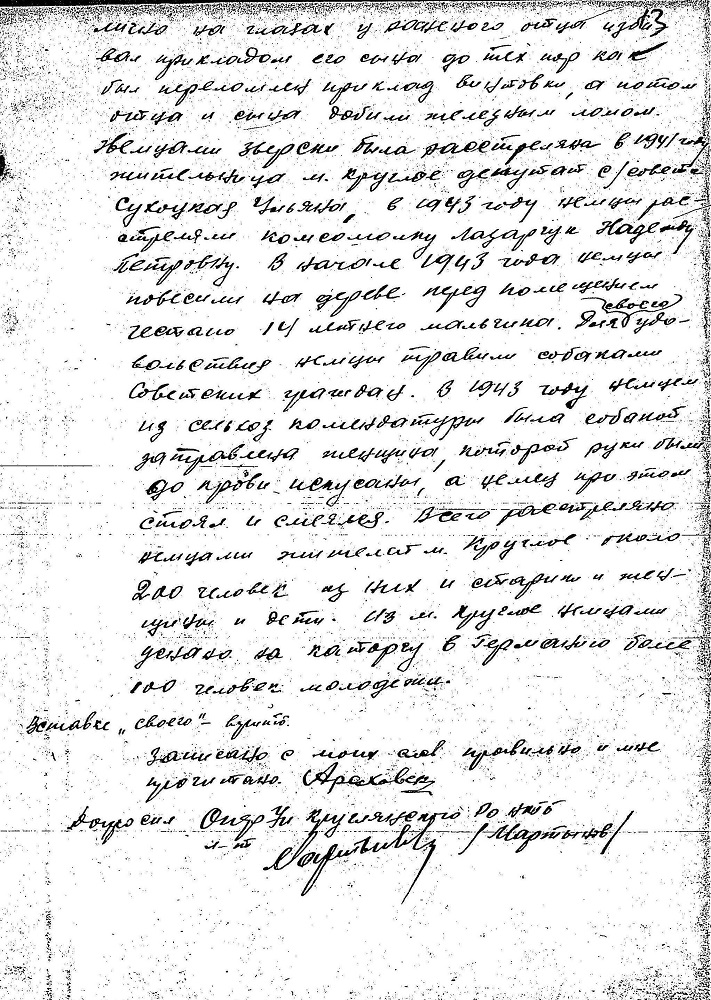 лично на глазах у данного отца изби- 3
вал прикладом его сына до тех пор как
был переломлен приклад винтовки, а потом
отца и сына добили железным ломом.
Немцами зверски была расстреляна в 1941 году
жительница м. Круглое депутат с/совета
Сухоцкая Ульяна, в 1943 году немцы рас-
стреляли комсомолку Лазарчук Надежду
Петровну. В начале 1943 года немцы
повесили на дереве перед помещением
гестапо 14 летнего мальчика. Для своего удо-
вольствия немцы травили собаками
Советских граждан. В 1943 году немцем
из сельхоз комендатуры была собакой
затравлена женщина, которой руки были
до крови искусаны, а немец при этом
стоял и смеялся. Всего расстреляно
немцами жителей м. Круглое около
200 человек из них и старики и жен-
щины и дети. Из м. Круглое немцами
угнано на каторгу в Германию более
100 человек молодежи.
Вставке „своего"-
Записано с моих слов правильно и мне
прочитано.
Допросил Опер Уп Круглянского РО НКГБ
л-т /Мартынов/